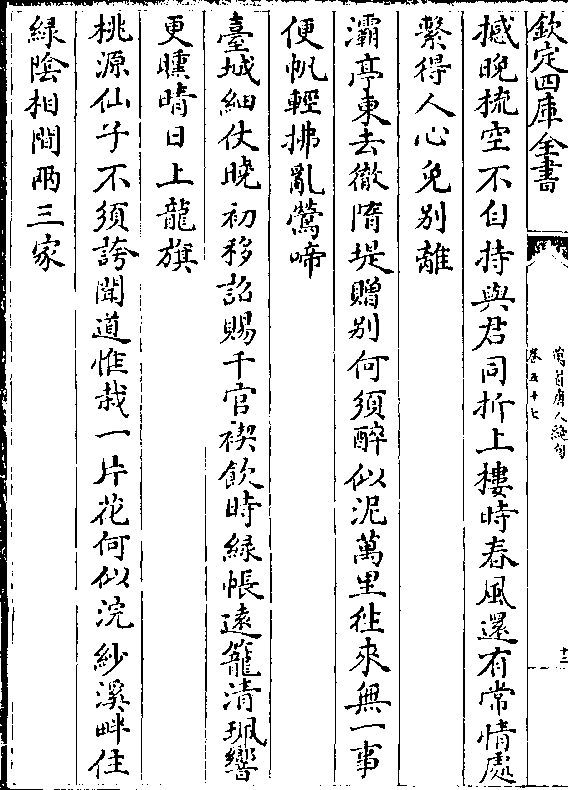 欽定四庫全書
萬首唐人絶句
卷五十七
十二
撼晚梳空不自持與君同折上樓時春風還有常情處
繫得人心免别離
灞亭東去徹隋堤贈别何須醉似泥萬里往來無一事
便帆輕拂亂鶯啼
臺城細仗曉初移詔賜千官禊飲時緑帳逺籠清珮響
更曛晴日上龍旗
桃源仙子不須誇聞道惟栽一片花何似浣紗溪畔住
緑陰相間兩三家